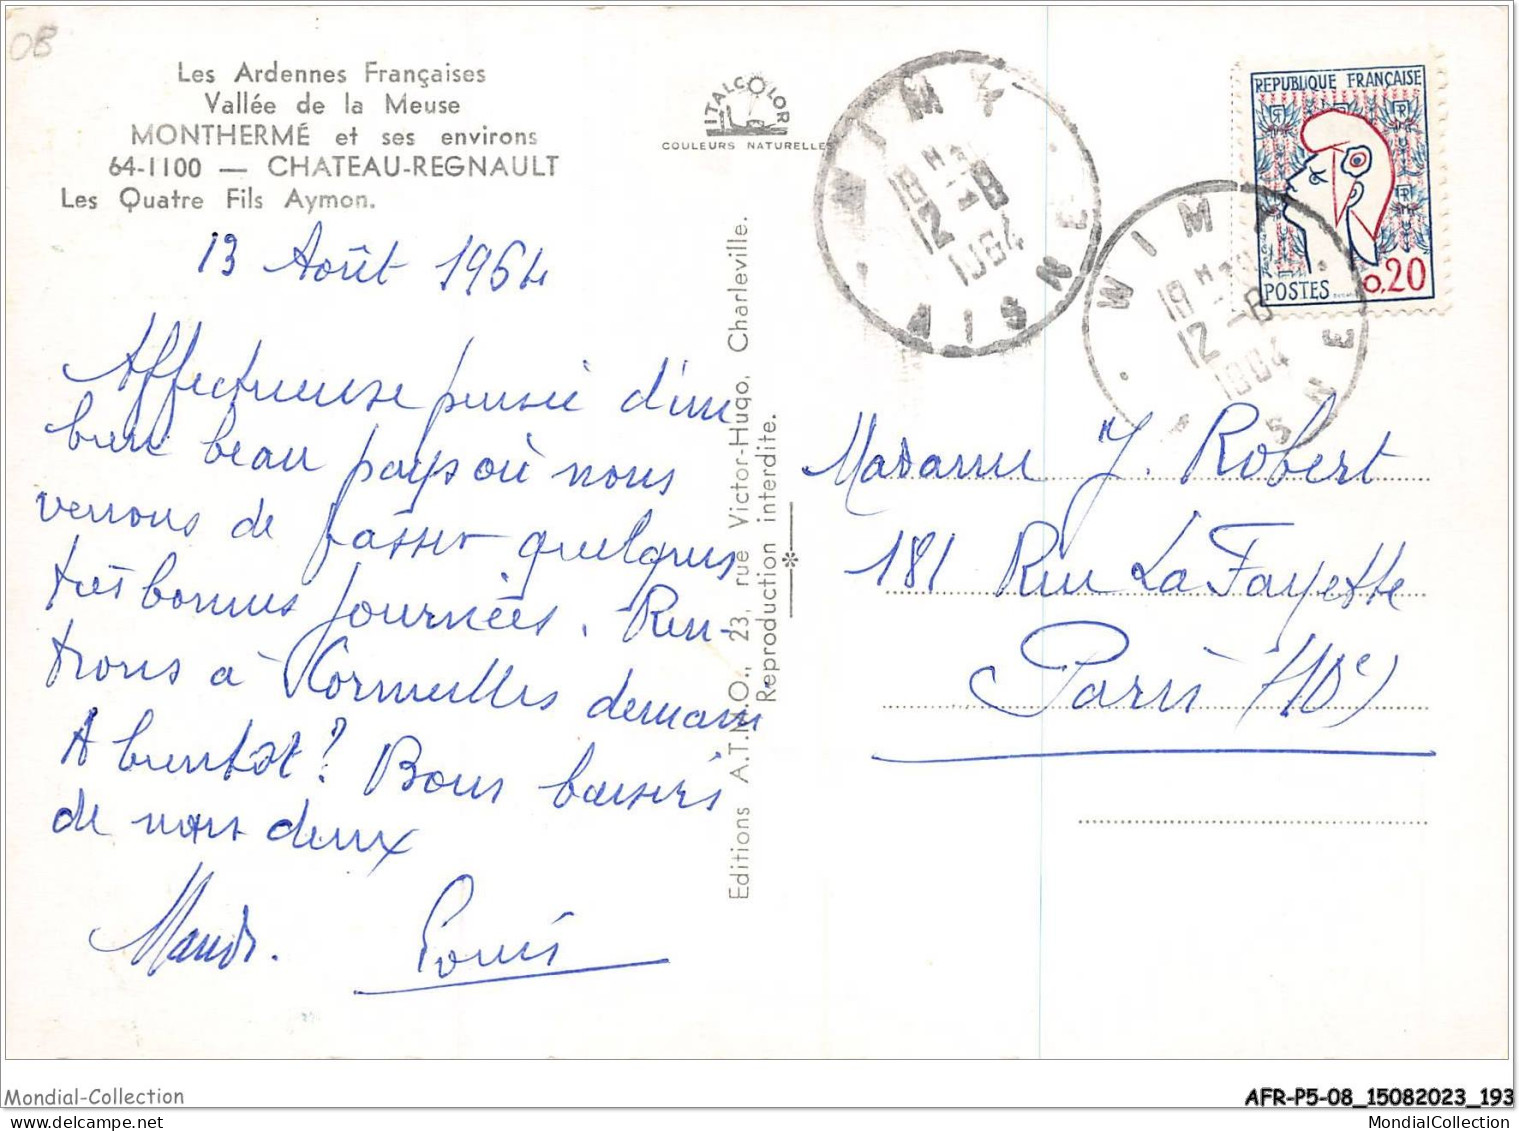 08
Les Ardennes Françaises
Vallée de la Meuse
MONTHERMÉ et ses environs
64-1100 — CHATEAU-REGNAULT
Les Quatre Fils Aymon.
13 Août 1964
Affectueuse pensée d'un
bien beau pays où nous
venons de passer quelques
très bonnes journées. Ren-
trons à Cormeilles demain
A bientôt? Bons baisers
de nous deux
Maud. Louis
ITALCOLOR
COULEURS NATURELLES
Editions A.T.M.O., 23, rue Victor-Hugo, Charleville.
Reproduction interdite.
WIMY
18 H
12 -8
1964
AISNE
WIMY
18 H
12 -8
1964
AISNE
REPUBLIQUE FRANÇAISE
POSTES 0,20
Madame J. Robert
181 Rue La Fayette
Paris (10e)
Mondial-Collection
AFR-P5-08_15082023_193
MondialCollection